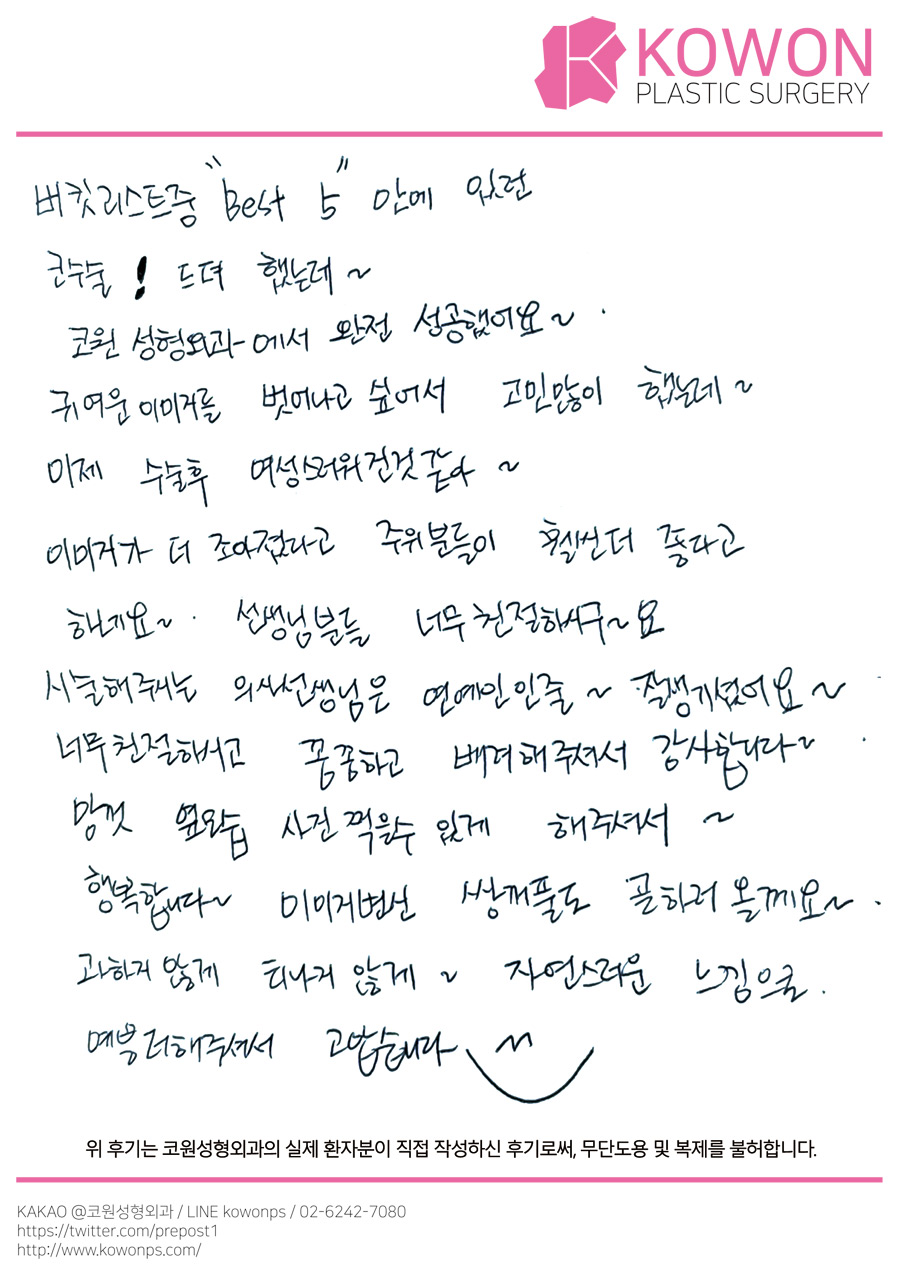 KOWON
PLASTIC SURGERY
버킷리스트중 "Best 5" 안에 있던
코수술! 드뎌 했는데~
코원 성형외과에서 완전 성공했어요~.
귀여운 이미지를 벗어나고 싶어서 고민많이 했는데~
이제 수술후 여성스러워진것같아~
이미지가 더 조아졌다고 주위분들이 훨씬더 좋다고
하네요~. 선생님분들 너무친절하시구~요
시술해주시는 의사선생님은 연예인인줄~ 잘생기셨어요~.
너무친절하시고 꼼꼼하고 배려해주셔서 감사합니다~.
맘껏 옆모습 사진찍을수 있게 해주셔서~
행복합니다~ 이미지변신 쌍꺼풀도 곧하러 올께요~.
과하지 않게 티나지 않게~ 자연스러운 느낌으로.
해주셔서 고맙습니다
위 후기는 코원성형외과의 실제 환자분이 직접 작성하신 후기로써, 무단도용 및 복제를 불허합니다.
KAKAO @코원성형외과 / LINE kowonps / 02-6242-7080
https://twitter.com/prepost1
http://www.kowonps.com/